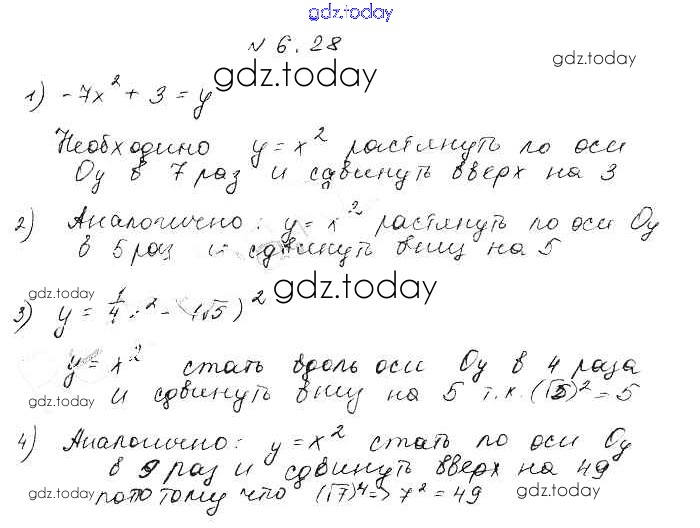 gdz.today
№ 6.28
gdz.today
gdz.today
1) -7x² + 3 = y
Необходимо y = x² растянуть по оси
Oy в 7 раз и сдвинуть вверх на 3
2) Аналогично: y = x² растянуть по оси Oy
в 5 раз и сдвинуть вниз на 5
gdz.today
gdz.today
3) y = 1/4 x² - (√5)²
y = x² сжать вдоль оси Oy в 4 раза
и сдвинуть вниз на 5 т.к. (√5)² = 5
gdz.today
gdz.today
4) Аналогично: y = x² сжать по оси Oy
в 9 раз и сдвинуть вверх на 49
потому что (√7)⁴ => 7² = 49
gdz.today
gdz.today